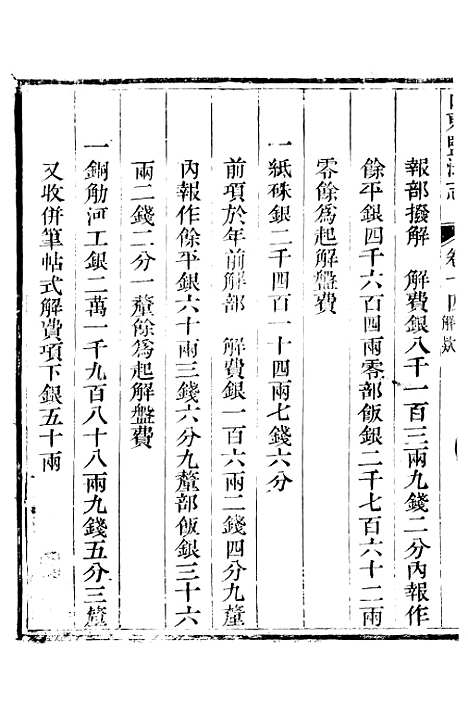 山東鹽法志 卷十四 解款
報部撥解 解費銀八千一百三兩九錢二分內報作
餘平銀四千六百四兩零部飯銀二千七百六十二兩
零餘為起解盤費
一紙硃銀二千四百一十四兩七錢六分
前項於年前解部 解費銀一百六兩二錢四分九釐
內報作餘平銀六十兩三錢六分九釐部飯銀三十六
兩二錢二分一釐餘為起解盤費
一銅觔河工銀二萬一千九百八十八兩九錢五分三釐
又收併筆帖式解費項下銀五十兩